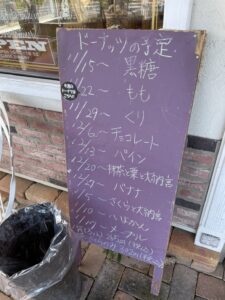 OPEN
ドーナッツの予定
11/15〜 黒糖
11/22〜 もも
11/29〜 くり
12/6〜 チョコレート
12/13〜 パイン
12/20〜 抹茶と栗と大納言
12/27〜 バナナ
1/5〜 さくらと大納言
1/10〜 いよかん
〜 メープル